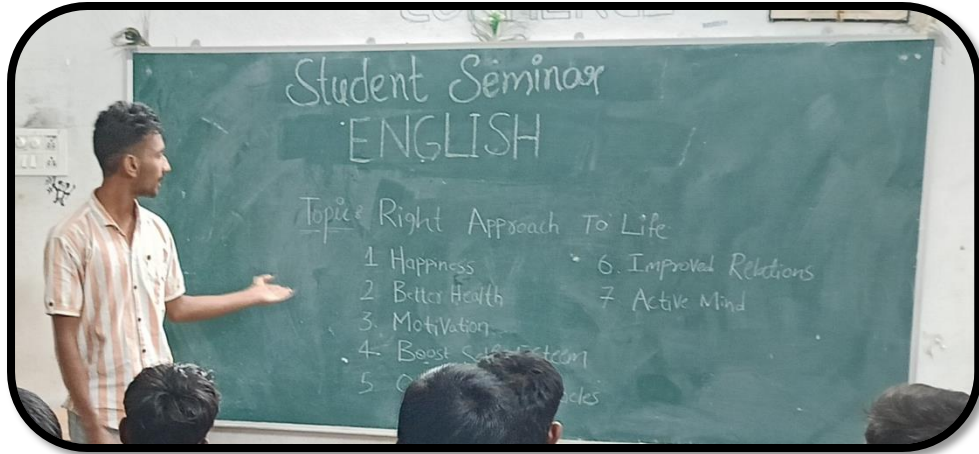 COMMERCE
Student Seminar
ENGLISH
Topic: Right Approach To Life
1 Happness
2 Better Health
3. Motivation
4. Boost Self Esteem
5
6. Improved Relations
7 Active Mind